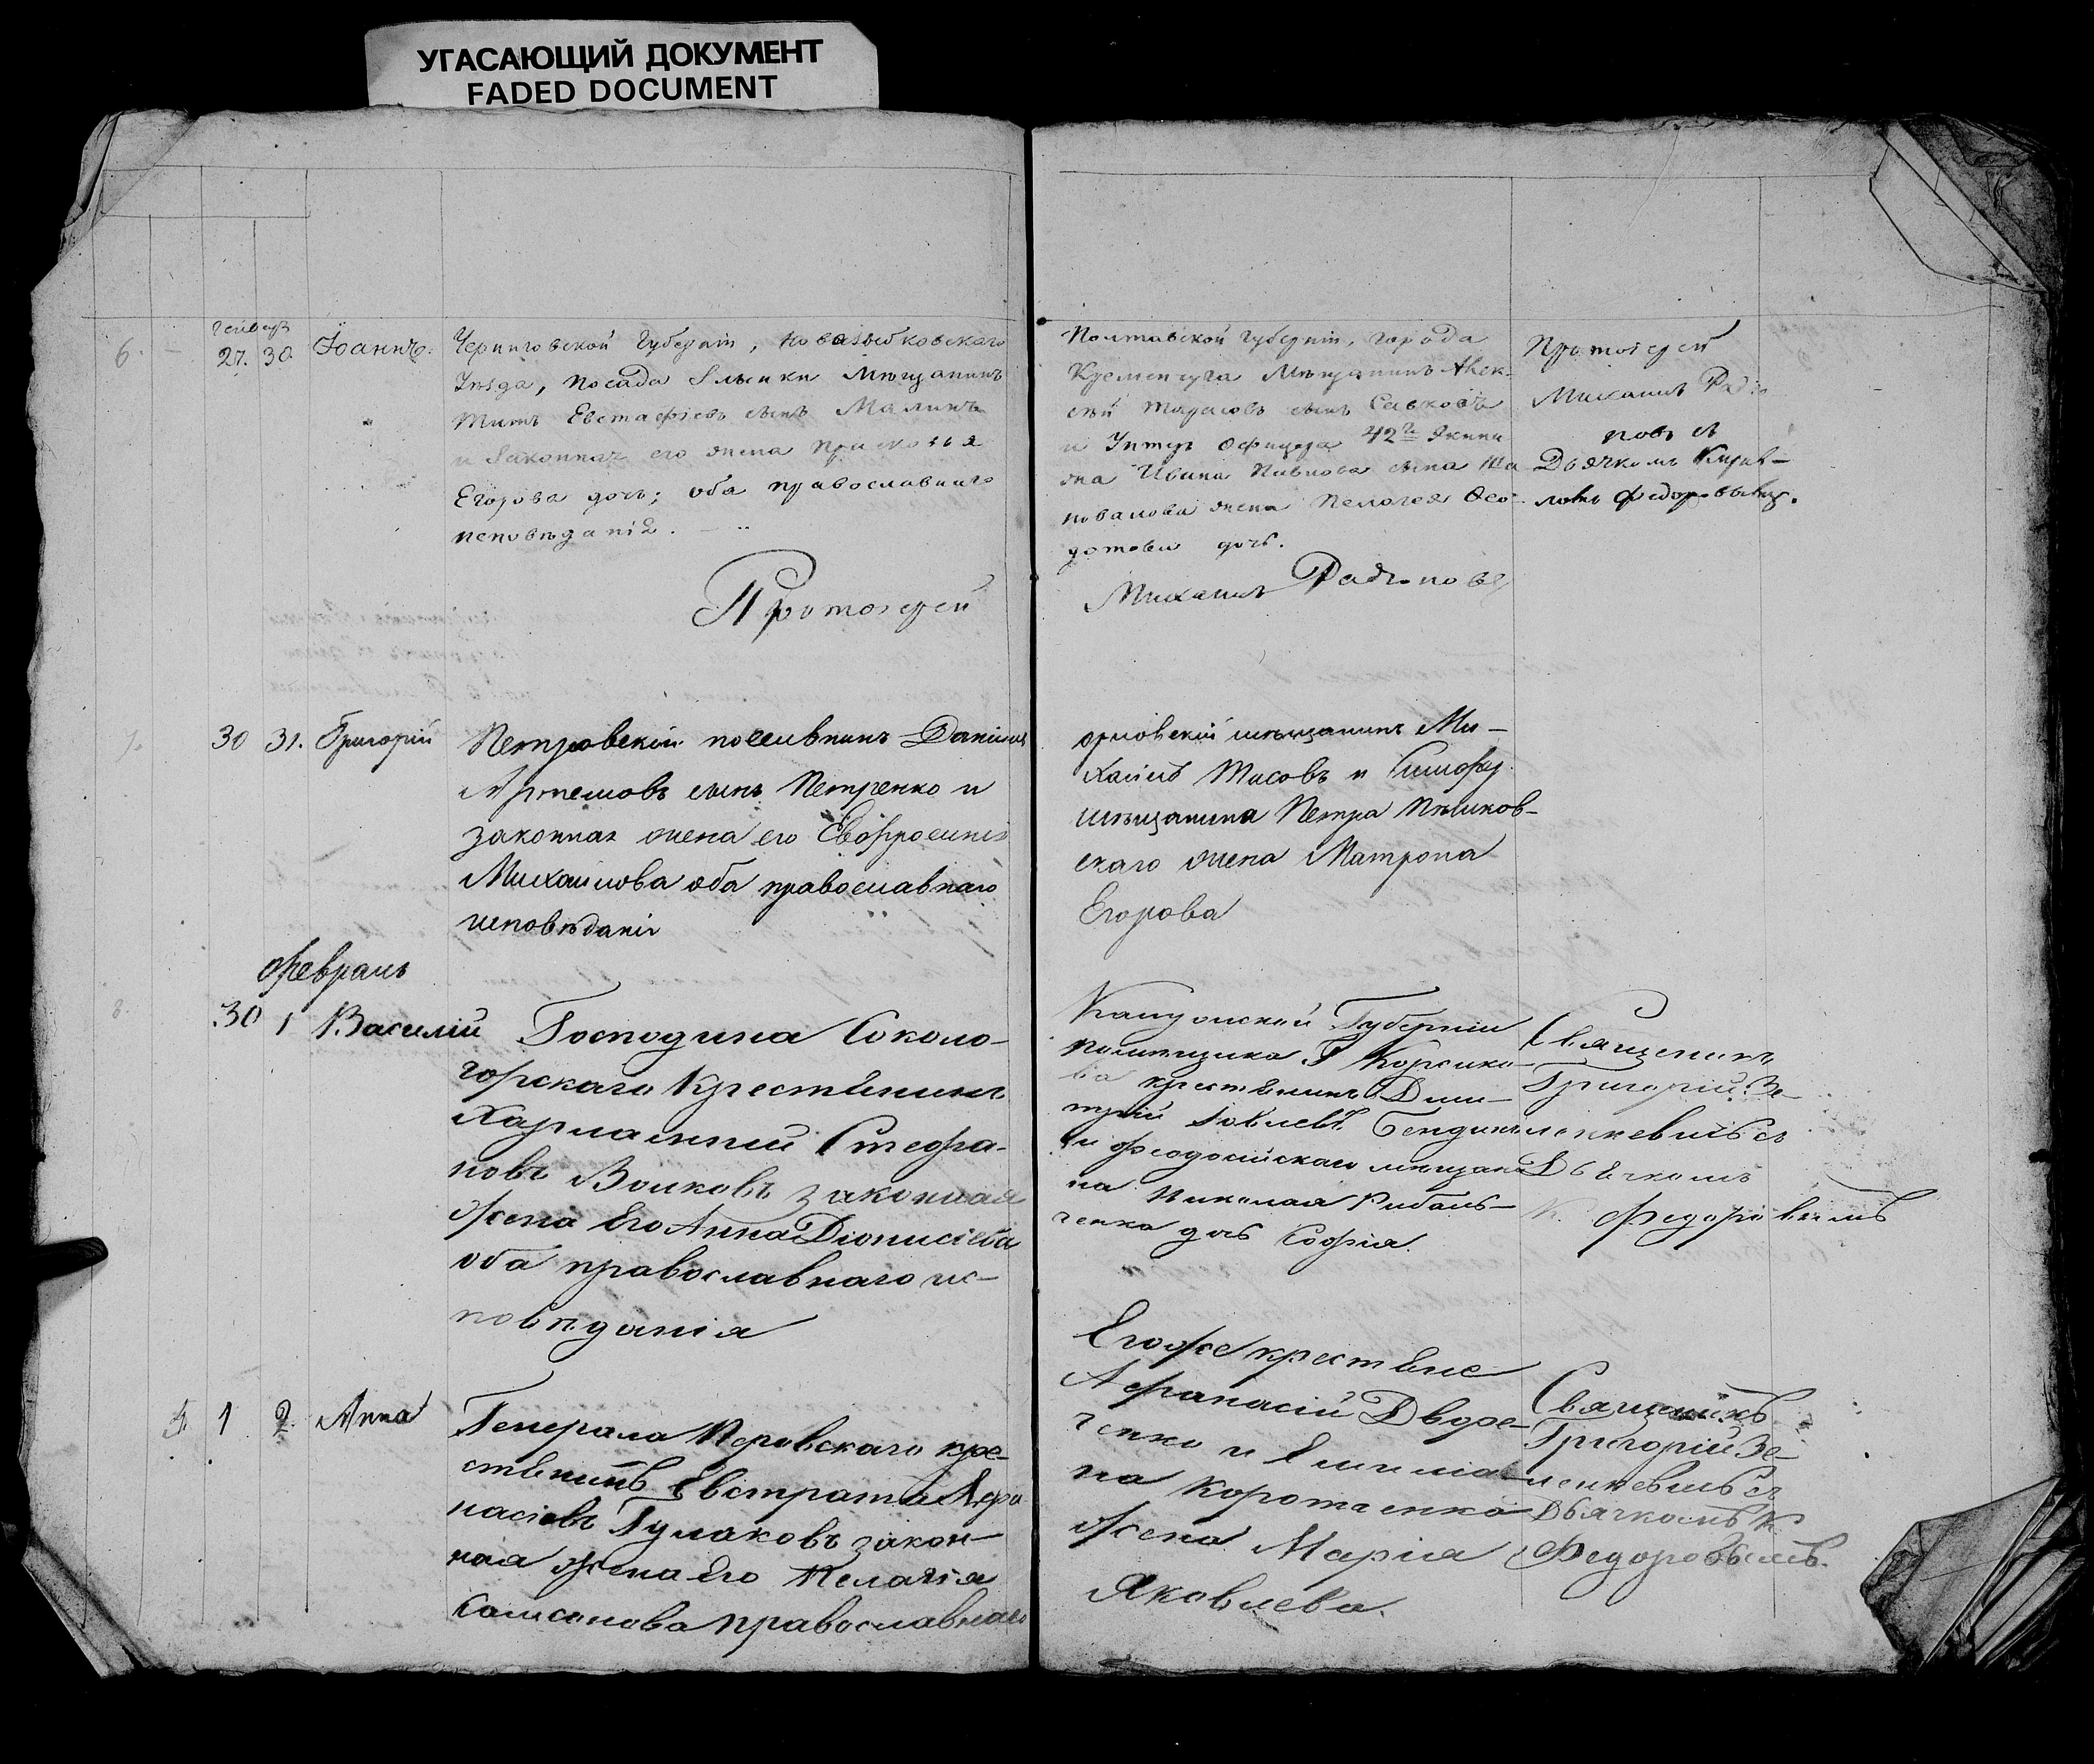 УГАСАЮЩИЙ ДОКУМЕНТ
FADED DOCUMENT
6.
Генварь
27. 30. Іоаннъ.
Черниговской Губерніи, Новозыбковскаго
Уѣзда, посада Злынки Мѣщанинъ
Титъ Евстафіевъ сынъ Малинъ
и Законная его жена Присковья
Егорова дочь; оба православнаго
исповѣданія.
Протоіерей
Полтавской Губерніи, города
Кременчуга Мѣщанинъ Алек-
сѣй Тарасовъ сынъ Савковъ
и Унтер Офицера 42го Экипа
жа Ивана Павлова сына Ша
повалова жена Пелагея Ѳео-
дотова дочь.
Михаилъ Родіоновъ
Протоіерей
Михаилъ Родіо
новъ съ
Дьячкомъ Кирил-
ломъ Федоровымъ.
30 31. Григорій
Петровскій поселянинъ Даніилъ
Артемовъ сынъ Петренко и
законная жена его Евфросинія
Михайлова оба православнаго
исповѣданія
орловскій мѣщанинъ Ми-
хаилъ Тисовъ и Симфер.
мѣщанина Петра Пѣшков-
скаго жена Матрона
Егорова
Февраль
8.
30 1 Василій
Господина Соколо-
горскаго Крестьянинъ
Харлампій Стефа-
новъ Волковъ законная
жена Его Анна Діонисіева
оба православнаго ис-
повѣданія
Калужской Губерніи
помѣщика Г. Корсако-
ва крестьянинъ Дми-
трій Яковлевъ
и Феодосійскаго мѣщани
на Николая Рибаль-
ченка дочь Софія.
Священникъ
Григорій Зе-
ленкевичъ съ
Дьячкомъ
К. Федоровымъ
1 2. Анна
Генерала Перовскаго кре-
стьянинъ Евстратій Афа
насіевъ Гулаковъ закон-
ная жена Его Пелагія
Самсонова православнаго
Егоже крестьяне
Афанасій Двуре-
ченко и Емиліа-
на Коротченка
жена Марія
Яковлева.
Священникъ
Григорій Зе-
ленкевичъ съ
Дьячкомъ К.
Федоровымъ.